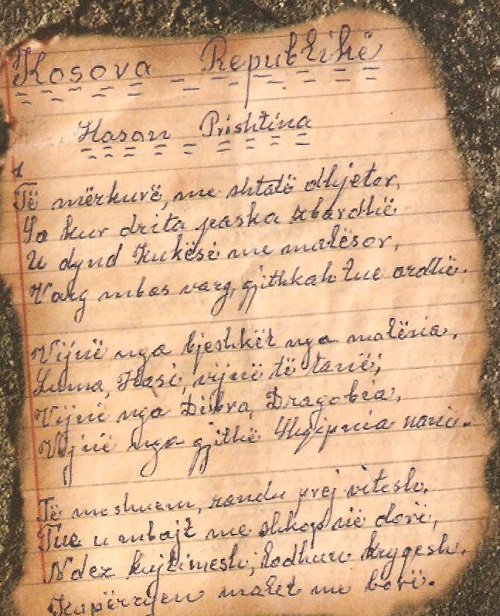 Kosova Republikë
Hasan Prishtina
1
Të mërkurë, me shtatë dhjetor,
Sa kur drita paska zbardhë
U dynd Kukësi me malësor,
Varg mbas varg, gjithkah tue ardhë.
Vijnë nga bjeshkët nga malësia,
Luma, Hasi, vijnë të tanë;
Vijnë nga Dibra, Dragobia,
Vijnë nga gjithë Shqipnia nanë.
Të moshuem, randu prej vitesh,
Tue u mbajt me shkop në dorë,
Ndez kujtimesh, lodhun kryqesh,
Kapërcyen malet me borë.